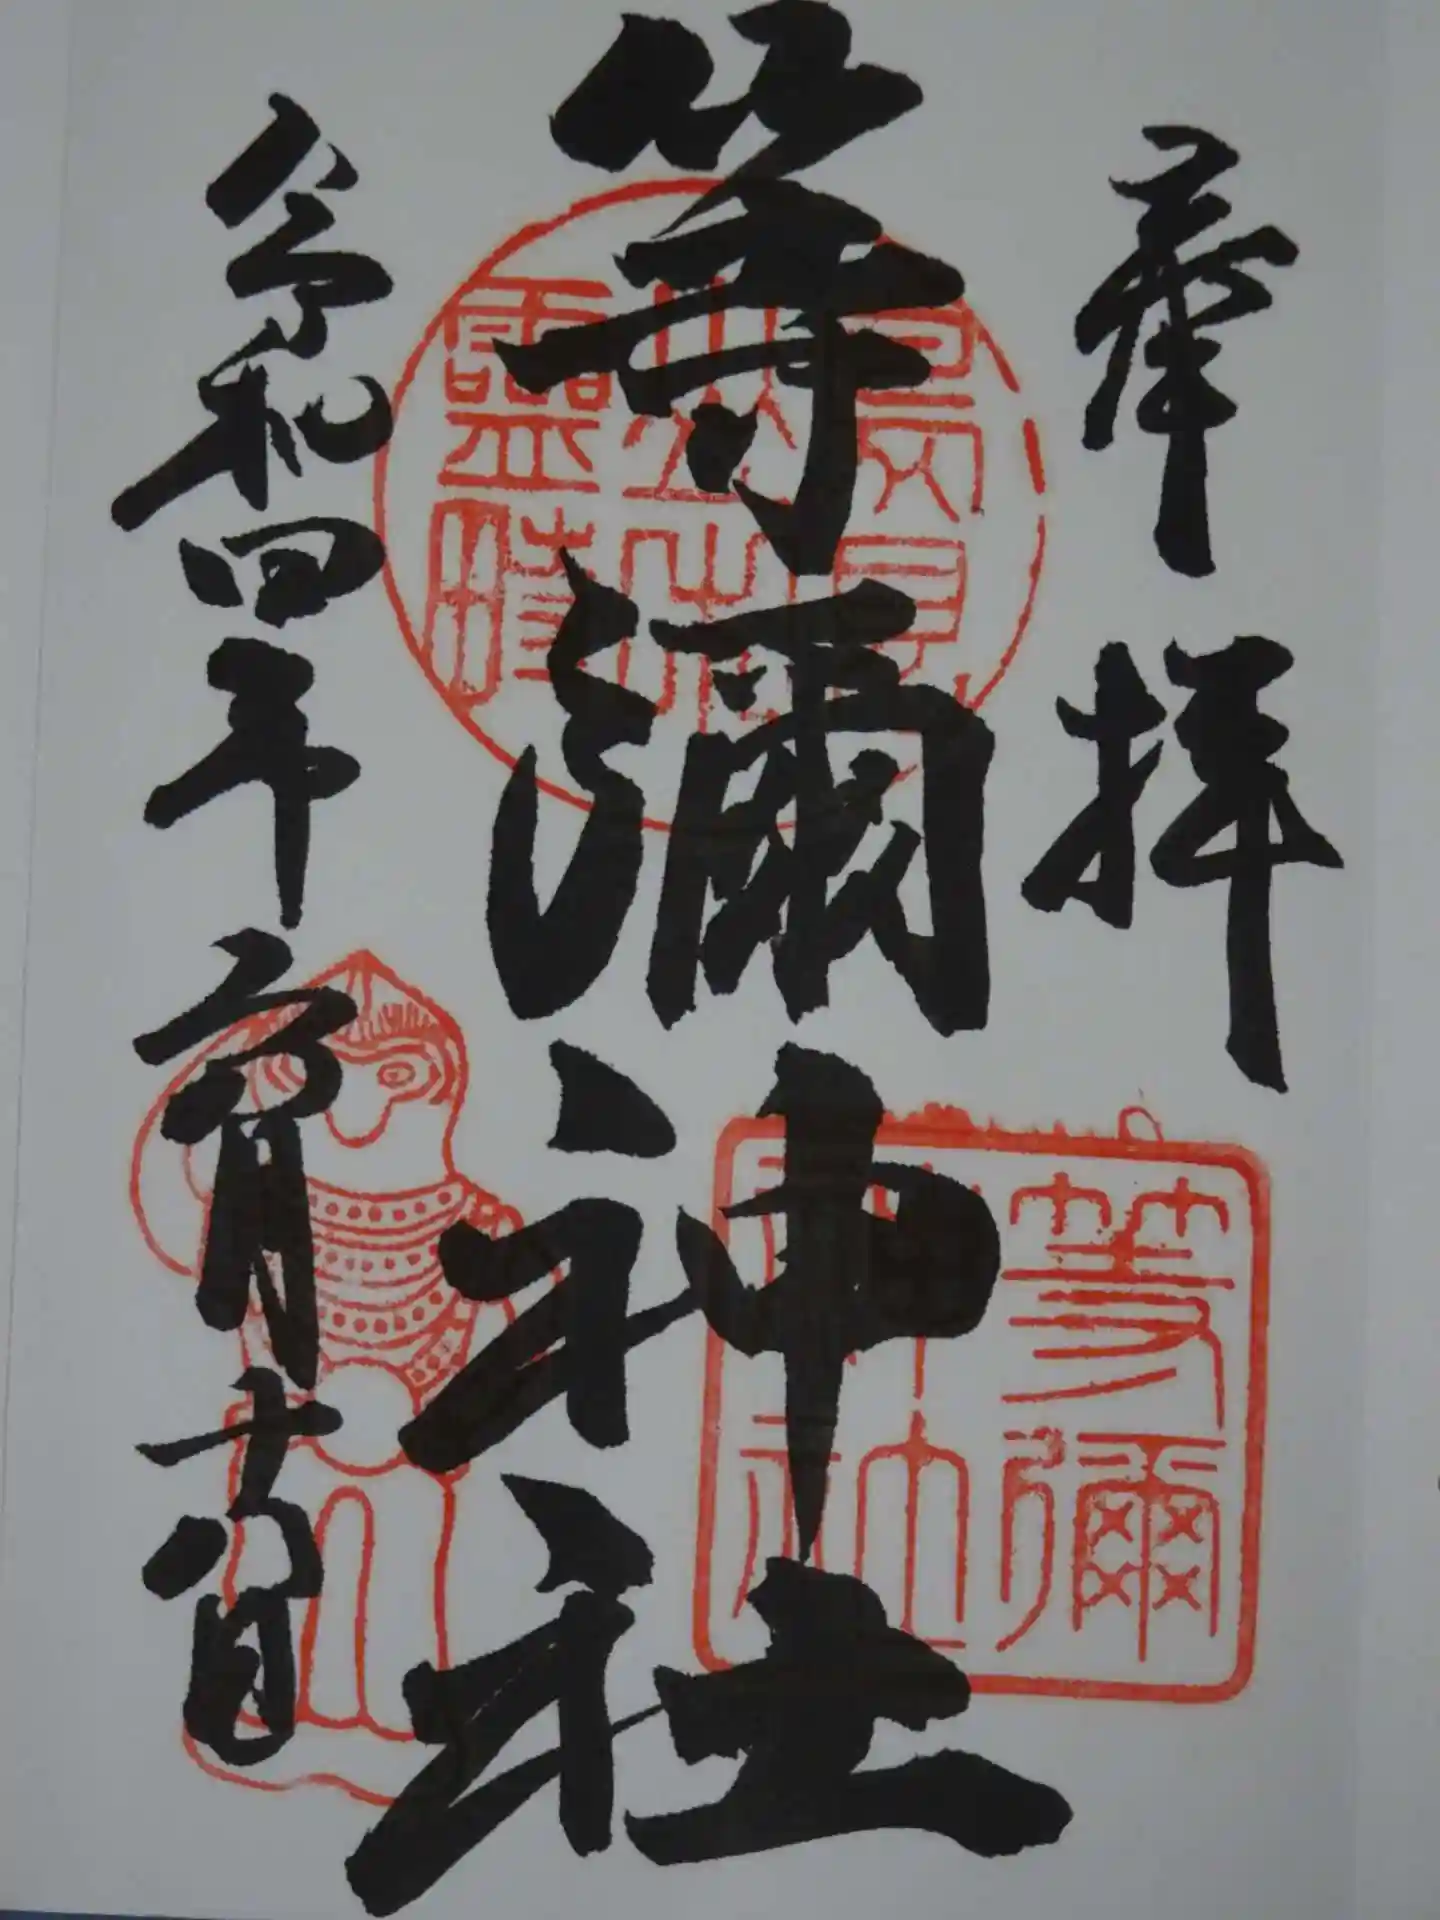 奉拝
等彌神社
令和四年六月十六日
等彌
神社